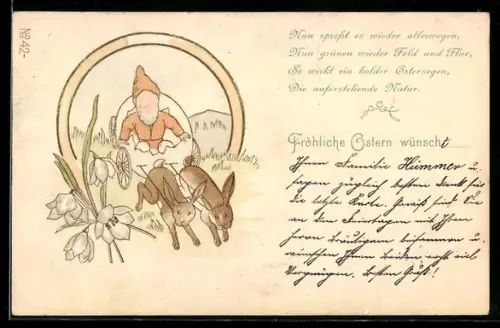 No. 42-
Nun sproßt es wieder allerwegen,
Nun grünen wieder Feld und Flur,
So wirkt ein holder Ostersegen,
Die auferstehende Natur.
Fröhliche Ostern wünscht
Ihnen Familie Hümmer u.
sagen zugleich besten Dank für
die letzte Karte. Gewiß sind Sie
an den Feiertagen mit Ihrem
Herrn Bräutigam beisammen u.
wünschen Ihnen beiden recht viel
Vergnügen. Besten Gruß!